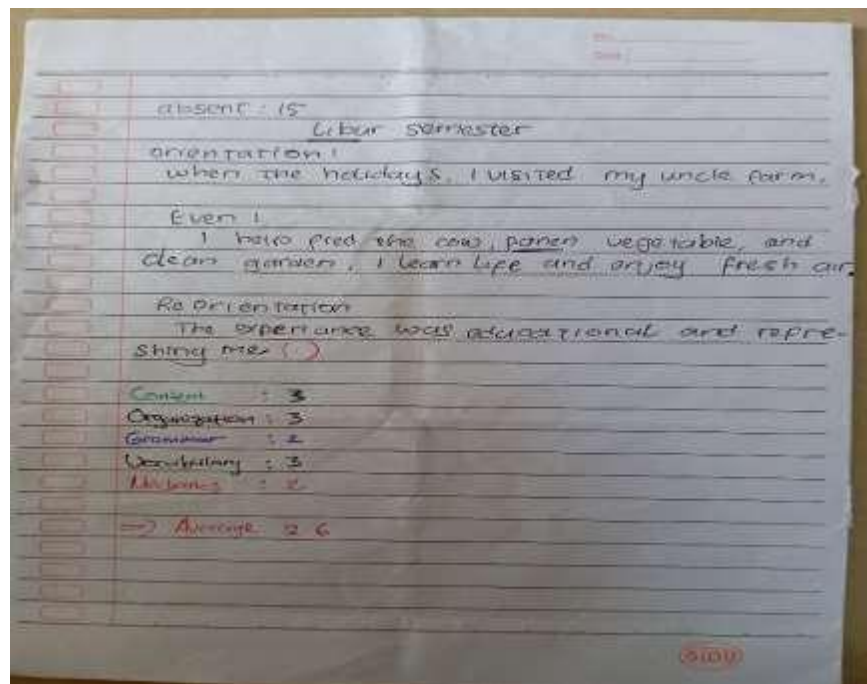 absent : 15
Libur semester
orientation !
when the holidays. I visited my uncle farm.
Even !
I help fred the cow, panen vegetable, and
clean garden, I learn life and enjoy fresh air.
Re orientation
The experiance was educational and repre-
shing me. (.)
Content : 3
Organization : 3
Grammar : 2
Vocabulary : 3
Mechanics : 2
Average 2.6
SIDU